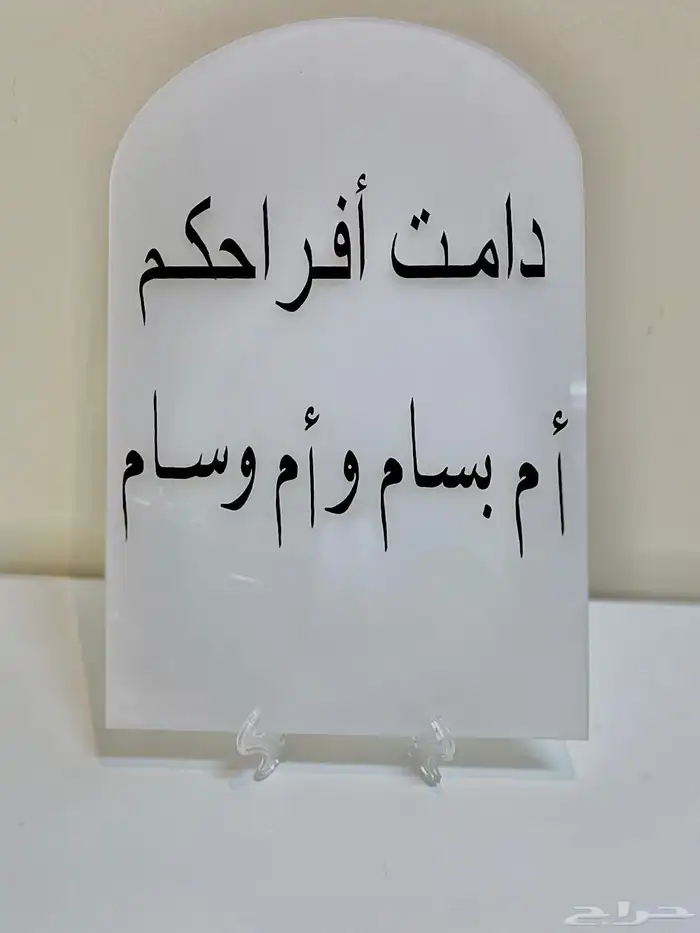 دامت أفراحكم
أم بسام وأم وسام
حراج